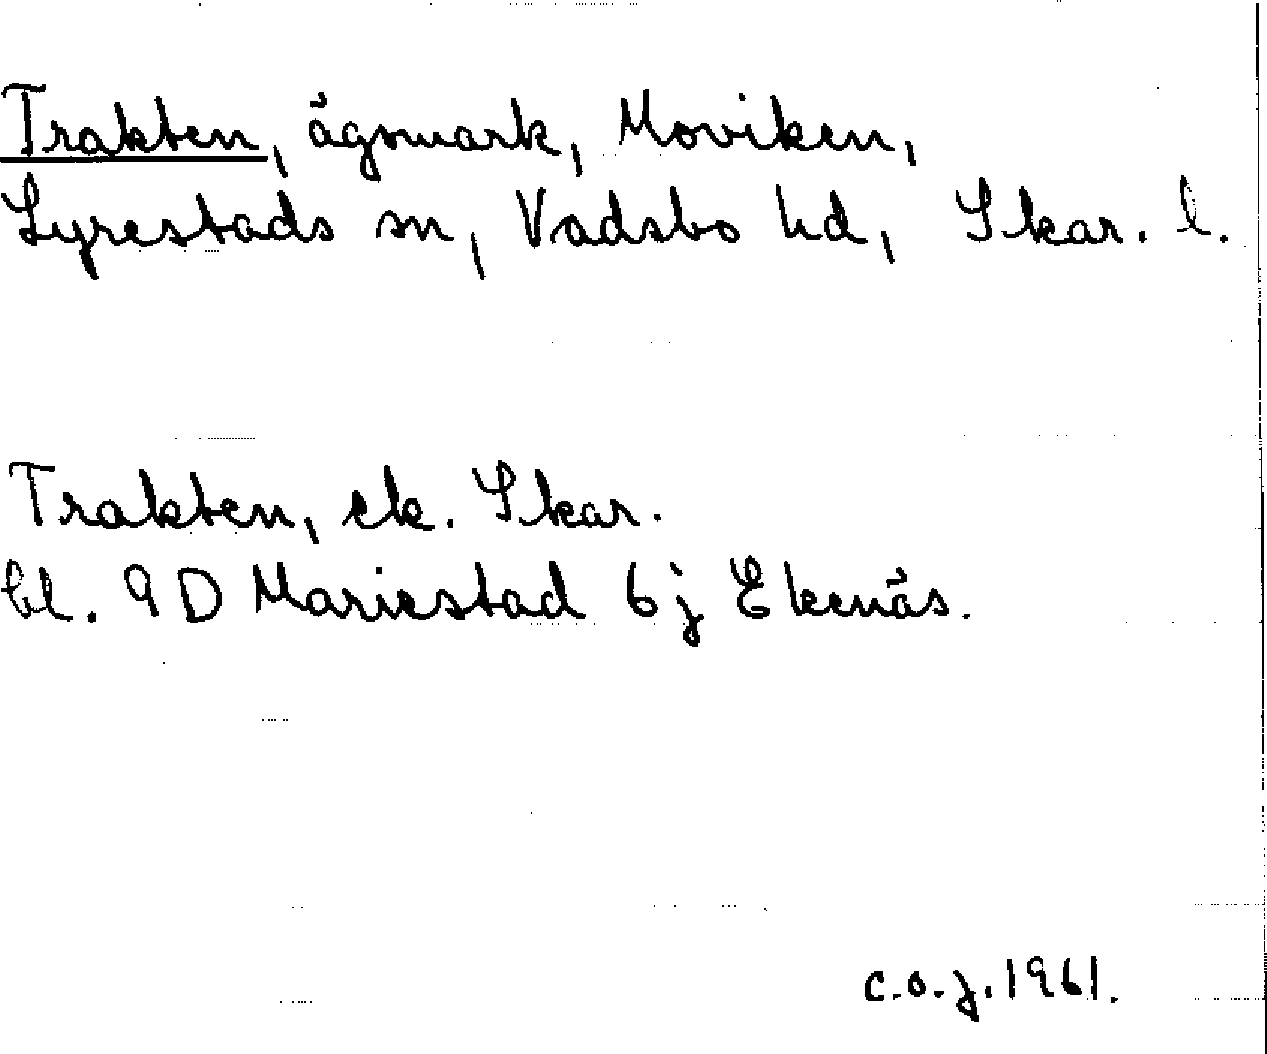 Trakten, ägomark, Moviken,
Lyrestads sn, Vadsbo hd, Skar. l.
Trakten, ek. Skar.
bl. 9 D Mariestad 6 j Ekenäs.
c.o.j. 1961.